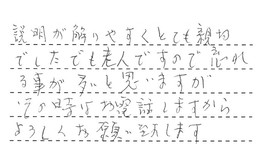 説明が解りやすくとても親切
でしたでも老人ですので忘れ
る事が多いと思いますが
その時はお電話しますから
よろしくお願い致します